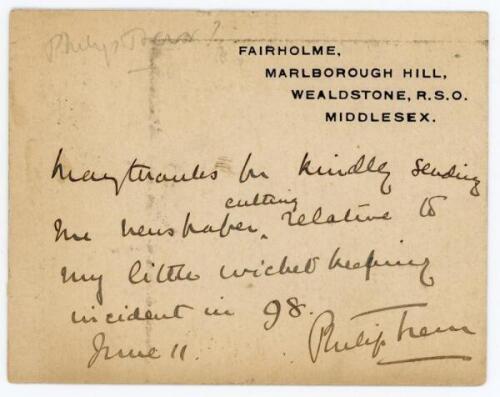 Philip Trevor?
FAIRHOLME,
MARLBOROUGH HILL,
WEALDSTONE, R.S.O.
MIDDLESEX.
Many thanks for kindly sending
me newspaper cutting relative to
my little wicket keeping
incident in 98.
June 11. Philip Trevor